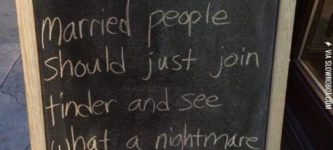 married people
should just join
tinder and see
what a nightmare
VIA SLOWROBOT.COM